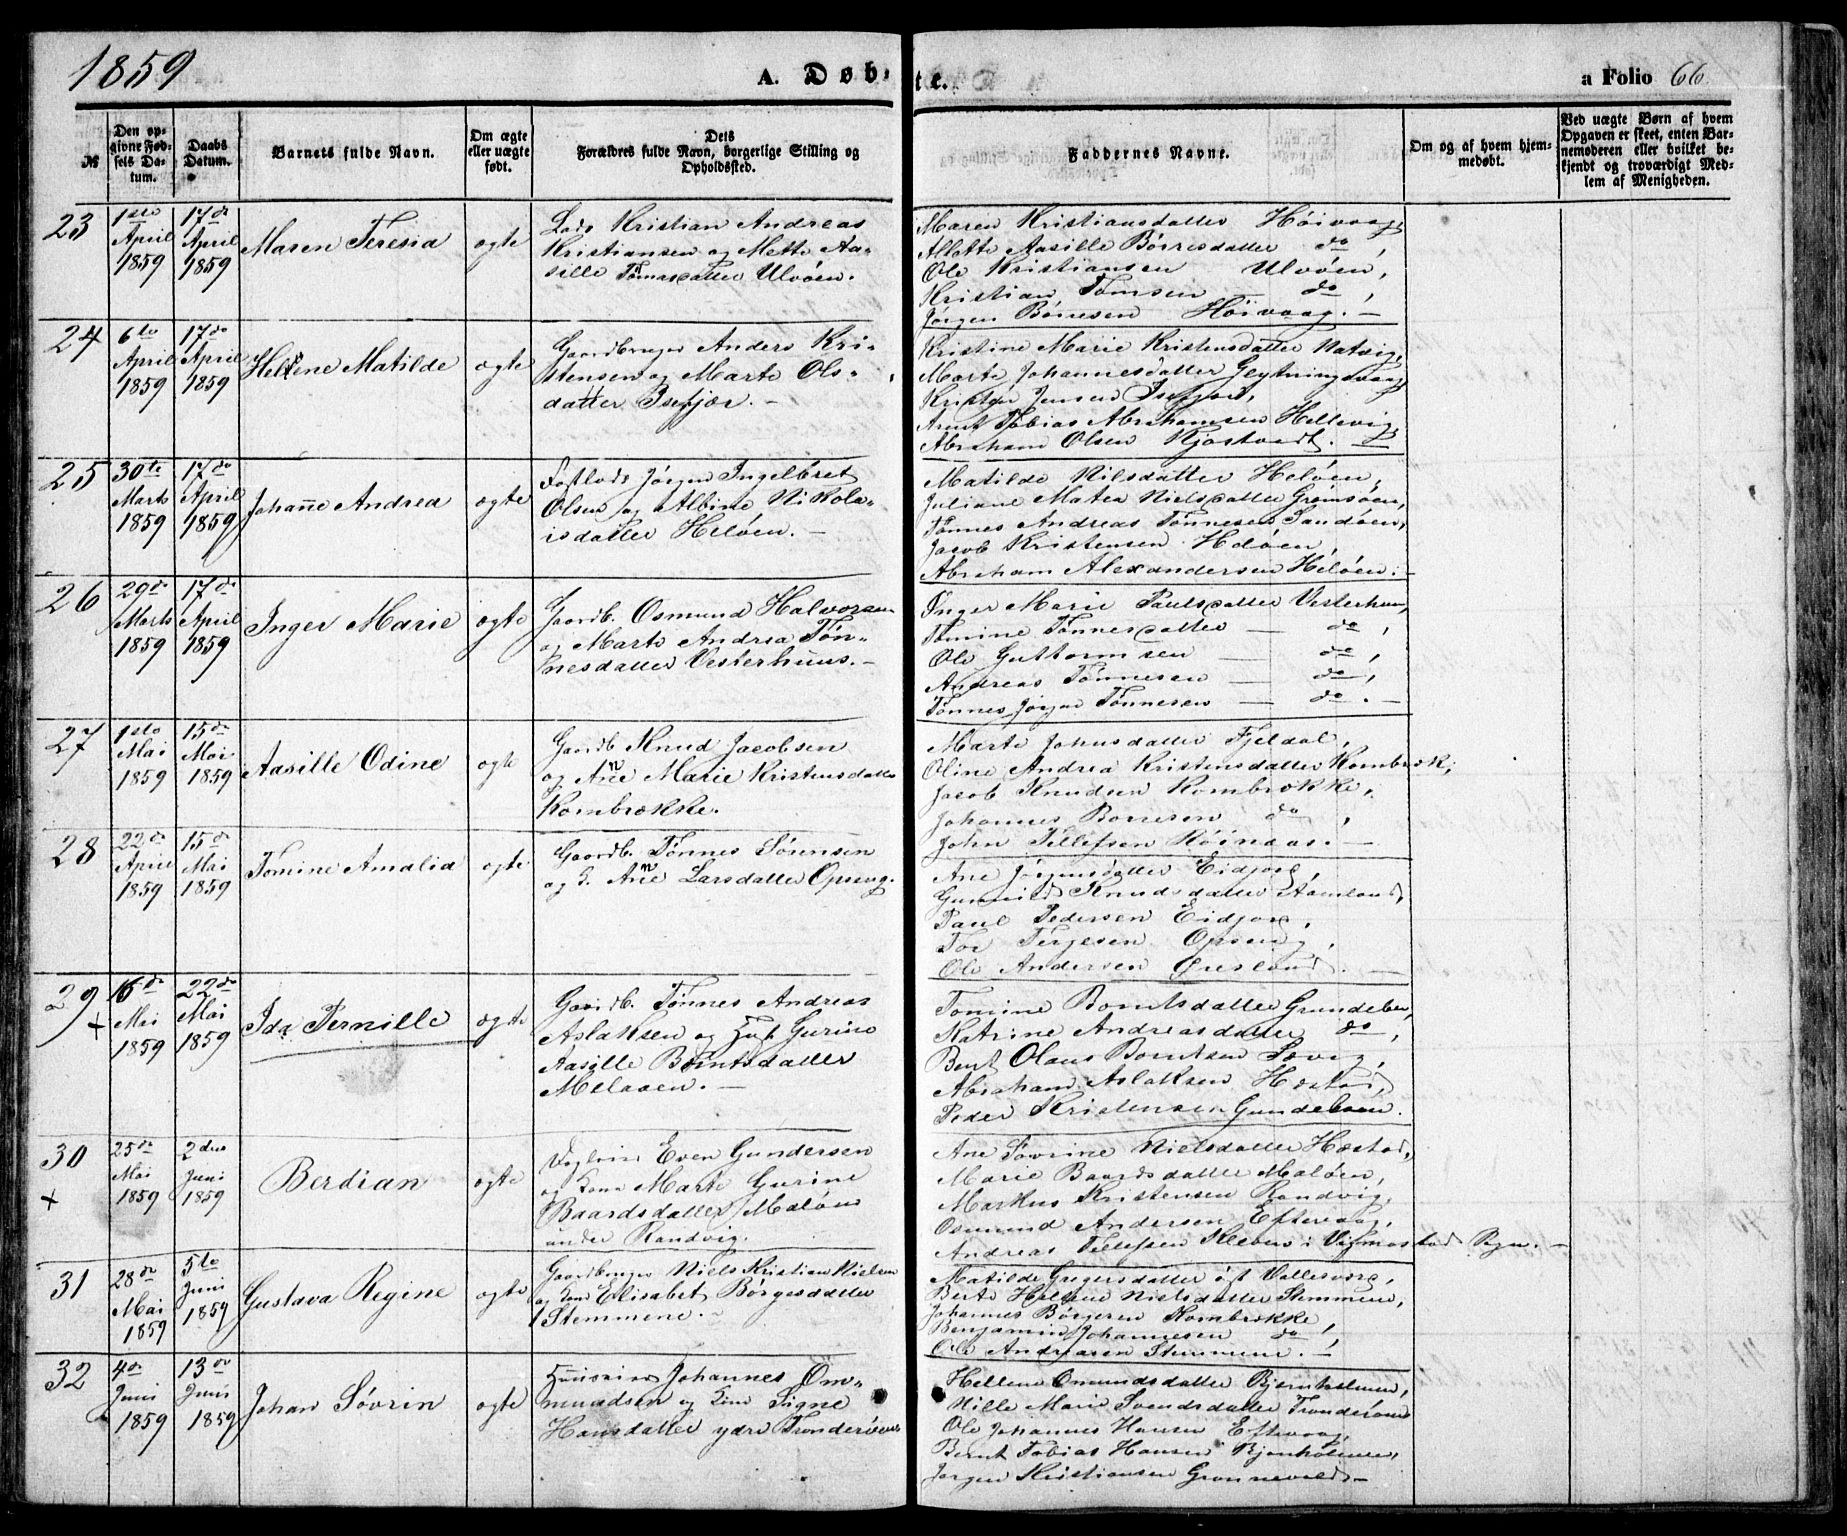 1859
A. Døb-
te.
a Folio 66.
№
Den op-
givne Fød-
sels Da-
tum.
Daabs
Datum.
Barnets fulde Navn.
Om ægte
eller uægte
født.
Dets
Forældres fulde Navn, borgerlige Stilling og
Opholdssted.
Faddernes Navne.
Om og af hvem hjem-
medøbt.
Ved uægte Børn af hvem
Opgaven er skeet, enten Bar-
nemoderen eller hvilket be-
kjendt og troværdigt Med-
lem af Menigheden.
23
1ste
April
1859
17de
April
1859
Maren Teresia
ægte
Lods Kristian Andreas
Kristiansen og Mette Aa-
sille Tomasdatter Ulvøen.
Maren Kristiansdatter Høivaag,
Mette Aasille Børresdatter do,
Ole Kristiansen Ulvøen,
Kristian Tomsen do,
Jørgen Børresen Høivaag. -
24
6te
April
1859
17de
April
1859
Hellene Matilde
ægte
Gaardbruger Anders Kri-
stensen og Marte Ols-
datter Isefjær. -
Kristine Marie Kristensdatter Natvig,
Marte Johannesdatter Glytningsvaag,
Jensen Isefjær,
Arnt Tobias Abrahamsen Hellevig,
Abraham Olsen Kjøstvedt. -
25
30te
Marts
1859
17de
April
1859
Johanne Andrea
ægte
Fastlods Jørgen Ingelbret
Olsen og Albine Nikola-
isdatter Heløen. -
Matilde Nilsdatter Heløen,
Juliane Matea Nielsdatter Grømsøen,
Tønnes Andreas Tønnesen Sandøen,
Jacob Kristensen Heløen,
Abraham Alexandersen Heløen. -
26
29de
Marts
1859
17de
April
1859
Inger Marie
ægte
Gaardb. Osmund Halvorsen
og Marte Andrea Tøn-
nesdatter Vesterhuus. -
Inger Marie Paulsdatter Vesterhuus,
Tomine Tønnesdatter — do,
Ole Guttormsen — do,
Andreas Tønnesen — do,
Tønnes Jørgen Tønnesen — do. -
27
1ste
Mai
1859
15de
Mai
1859
Aasille Odine
ægte
Gaardb. Knud Jacobsen
og Anne Marie Kristensdatter
Kornbrække.
Marte Johnsdatter Fjeldal,
Oline Andrea Kristensdatter Kornbræk,
Jacob Knudsen Kornbrække,
Johannes Børresen do,
John Tellefsen Røinaas. -
28
22de
April
1859
15de
Mai
1859
Tomine Amalia
ægte
Gaardb. Tønnes Sørensen
og H. Anne Larsdatter Opsvig.
Ane Jørgensdatter Eidjord,
Gunnild Knudsdatter Aamland,
Paul Pedersen Eidjord,
Tor Terjesen Opsvig,
Ole Andersen Øresland. -
29
+
16de
Mai
1859
22de
Mai
1859
Ida Pernille
ægte
Gaardb. Tønnes Andreas
Aslaksen og Hust. Gurine
Aasille Berntsdatter
Melaaen. -
Tomine Berntsdatter Grundeben,
Katrine Andreasdatter do,
Bent Olaus Berntsen Sævig,
Abraham Aslaksen Hæstad,
Peder Kristensen Gundeben.
30
+
25de
Mai
1859
2den
Juni
1859
Berdian
ægte
Even Gundersen
og Kone Marte Gurine
Baardsdatter Maløen
under Randvig.
Ane Søvrine Nielsdatter Hæstad,
Marie Baardsdatter Maløen,
Markus Kristensen Randvig,
Osmund Andersen Eftevaag,
Andreas Tellefsen Kleben i Vismostad Sogn. -
31
28de
Mai
1859
5te
Juni
1859
Gustava Regine
ægte
Gaardbruger Niels Kristian Nielsen
og Kone Elisabet Børgesdatter
Stemmene. -
Matilde Gregersdatter øst Vallesværd,
Berte Hellene Nielsdatter Stemmene,
Johannes Børgesen Kornbrække,
Benjamin Johannesen do,
Ole Andreasen Stemmene. -
32
4de
Juni
1859
13de
Juni
1859
Johan Søvrin
ægte
Johannes Om-
mundsen og Kone Signe
Hansdatter ydre Trønderøen
Hellene Omundsdatter Bjørnholmen,
Nille Marie Svendsdatter Trønderøen,
Ole Johannes Hansen Eftevaag,
Bernt Tobias Hansen Bjønholmen,
Jørgen Kristiansen Grønnevold. -